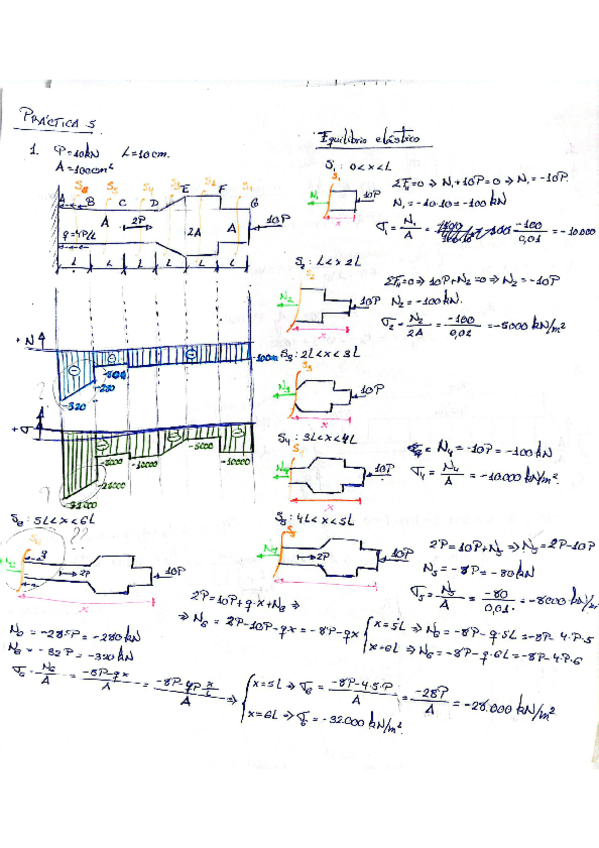 PRÁCTICA 5.
1. P=10kN L=10cm.
A=100cm²
S6 S5 S4 S3 S2 S1
A B C D E F G
A 2P 2A A 10P
q=4P/L
L L L L L L
+N
-100kN
-280
-320
+σ
-8000 -10000 -5000 -10000
-32000
Equilibrio elástico
S1: 0<x<L
S1
N1 10P
x
ΣFH=0 ⇒ N1+10P=0 ⇒ N1=-10P.
N1=-10·10=-100kN
σ1 = N1/A = -100/0,01 = -10.000
S2: L<x<2L
S2
N2 10P
x
ΣFH=0 ⇒ 10P+N2=0 ⇒ N2=-10P
N2=-100kN.
σ2 = N2/2A = -100/0,02 = -5000 kN/m²
S3: 2L<x<3L
S3
N3 10P
x
S4: 3L<x<4L
S4
N4 10P
x
N4=-10P=-100kN
σ4 = N4/A = -10.000 kN/m².
S5: 4L<x<5L
S5
2P 10P
x
2P=10P+N5 ⇒ N5=2P-10P
N5=-8P=-80kN
σ5 = N5/A = -80/0,01 = -8000 kN/m²
S6: 5L<x<6L ??
S6
2P 10P
x
2P=10P+q·x+N6 ⇒
⇒ N6=2P-10P-qx=-8P-qx
x=5L ⇒ N6=-8P-q·5L=-8P-4·P·5
x=6L ⇒ N6=-8P-q·6L=-8P-4·P·6
N6=-28P=-280kN
N6=-32P=-320kN
σ6 = N6/A = -8P-qx/A = -8P-4P·x/L/A ⇒
x=5L ⇒ σ6 = -8P-4·5·P/A = -28P/A = -28.000 kN/m²
x=6L ⇒ σ6=-32.000 kN/m².